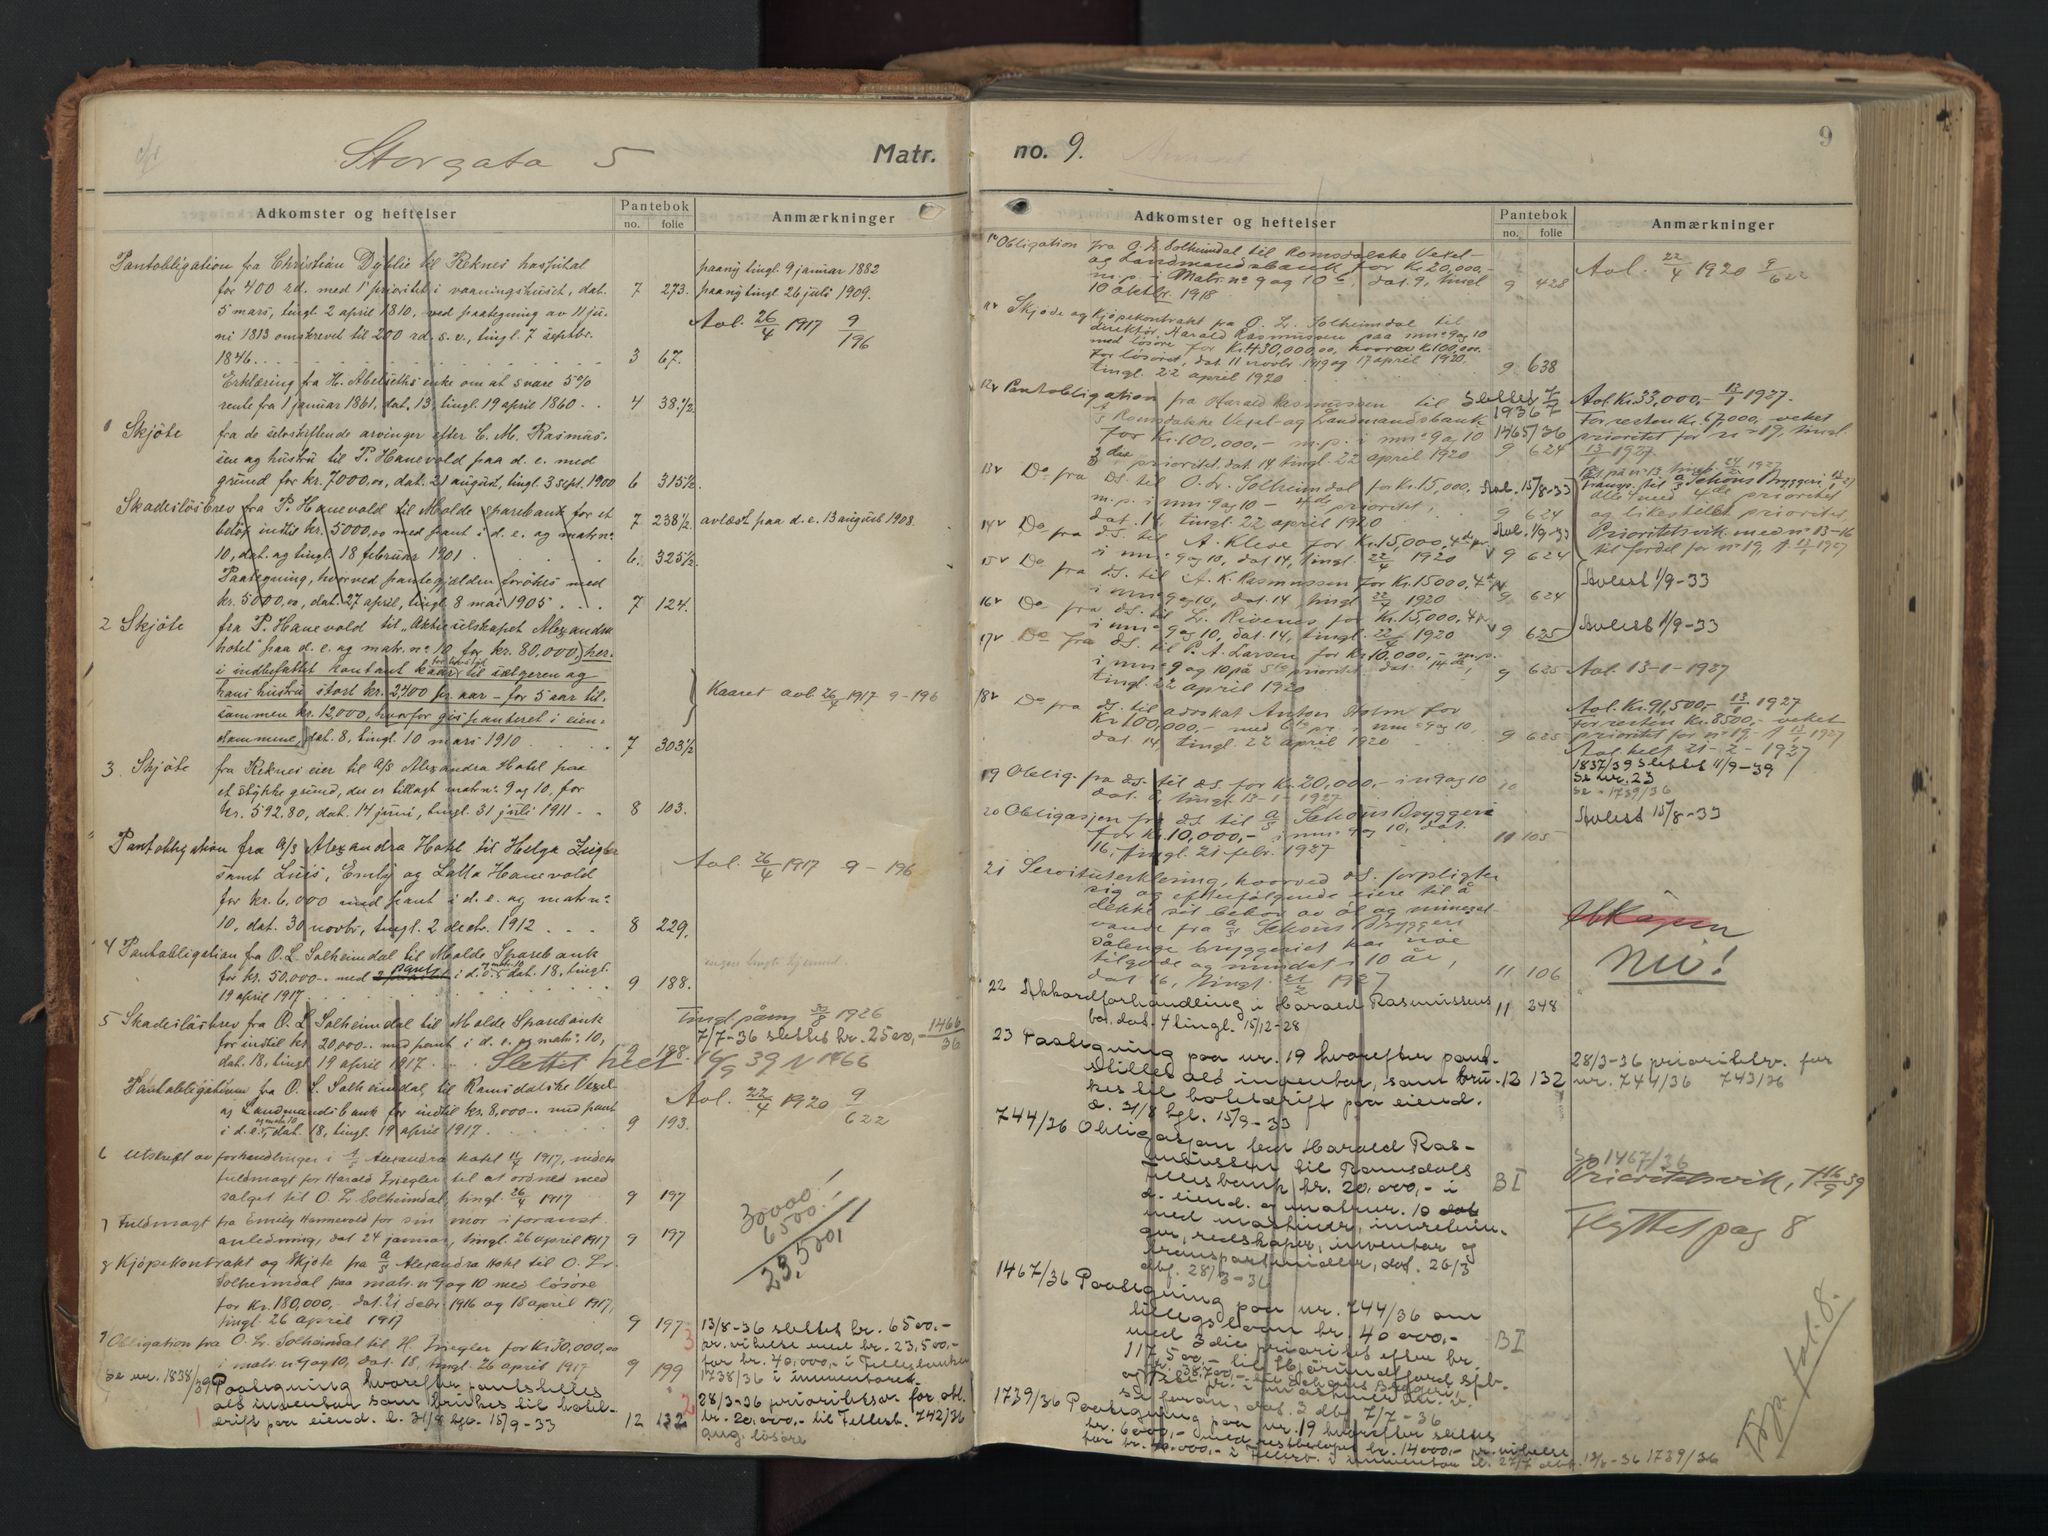 Storgata 5 Matr.
Adkomster og heftelser Pantebok Anmærkninger
no. folie
Pantobligation fra Christian Dyblie til Reknes hospital paany tingl. 9 januar 1882
for 400 rd. med 1 prioritet i vaaningshuset, dat. 7 273. paany tingl. 26 juli 1909.
5 mars, tingl. 2 april 1810, ved paategning av 11 ju- Avl. 26/4 1917 9/196
ni 1813 omskrevet til 200 rd. s. v., tingl. 7 septbr.
1846. 3 67.
Erklæring fra H. Abelseths enke om at svare 5%
rente fra 1 januar 1861, dat. 13, tingl. 19 april 1860 4 38 1/2
1 Skjöte fra de selvskiftende arvinger efter C. M. Rasmus-
sen og hustru til P. Hanevold paa d. e. med
grund for kr. 7000,00, dat. 21 august, tingl. 3 sept. 1900 6 315 1/2
Skadeslösbrev fra P. Hanevold til Molde Sparebank for et
belöp indtil kr. 5000,00 med pant i d. e. og matr. nº 7 238 1/2 avlæst paa d. e. 13 august 1908.
10, dat. og tingl. 18 februar 1901 6. 325 1/2
Paategning, hvorved pantegjælden forökes med
kr. 5000,00, dat. 27 april, tingl. 8 mai 1905 7 124.
2 Skjöte fra P. Hanevold til "Aktieselskapet Alexandra
hotel" paa d. e. og matr. nº 10 for kr. 80,000, her-
i indbefattet kontant kaar til sælgeren og
hans hustru stort kr. 2400 pr. aar - for 5 aar til- Kaaret avl. 26/4 1917 9-196
sammen kr. 12,000, hvorfor gis panteret i eien-
dommene, dat. 8, tingl. 10 mars 1910 7 303 1/2
3. Skjöte fra Reknes eier til a/s Alexandra Hotel paa
et stykke grund, der er tillagt matr. nº 9 og 10, for
kr. 592,80, dat. 14 juni, tingl. 31 juli 1911 8 103.
Pantobligation fra a/s Alexandra Hotel til Helga Ziegler Avl. 26/4 1917 9 - 196
samt Luis, Emily og Lalla Hanevold
for kr. 6.000 med pant i d. e. og matr. nº
10, dat. 30 novbr, tingl. 2 decbr. 1912 8 229.
4 Pantobligation fra O. L. Solheimdal til Molde Sparebank
for kr. 50,000.- med pant i d. e. og matr. 10 dat. 18, tingl.
19 april 1917 9 188.
5 Skadeslösbrev fra O. L. Solheimdal til Molde Sparebank Tingl. påny 1926
for indtil kr. 20,000.- med pant i d. e. og matr. 10, 7/7-36 slettes kr. 2500,- 1466/36
dat. 18, tingl. 19 april 1917 9 188. Slettet helt 16/9 39 N 1466
Pantobligation fra O. L. Solheimdal, til Romsdalske Vexel- Avl. 22/4 1920 9/622
og Landmandsbank for indtil kr. 8,000.- med pant
i d. e. og matr. 10, dat. 18, tingl. 19 april 1917 9 193.
6 Utskrift av forhandlinger i A/S Alexandra hotel 11/4 1917, inden
fuldmagt for Harald Ziegler til at ordne med
salget til O. L. Solheimdal, tingl. 26/4 1917 9 197
7 Fuldmagt fra Emily Hannevold for sin mor i foranst.
anledning, dat 24 januar, tingl. 26 april 1917 9 197
30000
6500
23,500
8 Kjöpekontrakt og Skjöte fra a/s Alexandra Hotel til O. L.
Solheimdal paa matr. n 9 og 10 med lösöre
for Kr. 180,000,- dat. 21 debr. 1916 og 18 april 1917,
tingl. 26 april 1917 9 197
9 Obligation fra O. L. Solheimdal til H. Ziegler for Kr. 30,000,00 3 13/8-36 slettes kr. 6500,-
i matr. n 9 og 10, dat. 18, tingl. 26 april 1917 9 199 pr. vikelse med kr. 23,500,-
(Se nr. 1838/39 for kr. 40,000,- i Fellesbanken
1738/36 i inventaret.
1 Paategning hvorefter pantstilles 2 28/3-36 prioritetsv. for obl.
als inventar som brukes til hotel- kr. 20.000,- til Fellesb. 742/36
drift paa eiend. d. 31/8 tgl. 15/9-33 12 132 ang. lösöre

no. 9. 9
Adkomster og heftelser Pantebok Anmærkninger
no. folie
10 Obligation fra O. L. Solheimdal til Romsdalske Vexel- Avl. 22/4 1920 9/622
og Landmandsbank for Kr. 20,000,-
m. p. i Matr. nº 9 og 10, dat. 9, tingl 9 428
10 oktbr. 1918.
11 Skjöde og Kjöpekontrakt fra O. L. Solheimdal til
direktör Harald Rasmussen paa mnº 9 og 10
med lösöre for Kr. 430,000,00, hvorav Kr. 100,000.
for lösöret, dat. 11 novbr 1919 og 17 april 1920.
tingl. 22 april 1920 9 638
12 Pantobligation fra Harald Rasmussen til Slettes 1936 Avl. Kr. 33,000,- 13/1 1927.
A/S Romsdalske Vexel og Landmandsbank 1465/36 For resten Kr. 67,000, veket
for Kr. 100,000,- m. p. i mnº 9 og 10 9 624 prioritet for nº 19, tingl.
3die prioritet dat. 14 tingl. 22 april 1920 13/1 1927
13 Do fra ds. til O. L. Solheimdal for Kr. 15,000, Avl. 15/8-33 Transp. til a/s Sekous Bryggeri
m. p. i mnº 9 og 10 - 4de prioritet, Alle med 4de prioritet
dat. 14, tingl. 22 april 1920 9 624 og likestillet prioritet
14 Do fra ds. til A. Kleve for Kr. 15,000, 4de pr. Avl. 1/9-33 Prioritetsvik. med nº 13-16
i mnº 9 og 10, dat. 14, tingl. 22/4 1920 9 624 til fordel for nº 19, t. 13/1 1927
15 Do fra ds. til A. K. Rasmussen for Kr. 15000, 4de pr. Avlest 1/9-33
i mnº 9 og 10, dat. 14, tingl. 22/4 1920 9 624
16 Do fra ds. til L. Rivenes for Kr. 15,000, 4 pr. Avlest 1/9-33
i mnº 9 og 10, dat. 14, tingl. 22/4 1920 9 625
17 Do fra ds. til P. A. Larsen for Kr. 10,000,- m. p.
i mnº 9 og 10 på 5te prioritet. dat. 14de, 9 625 Avl. 13-1-1927
tingl. 22 april 1920
18 Do fra ds. til advokat Anton Holm for Avl. Kr. 91,500,- 13/1 1927
Kr. 100,000,- med 6te pr. i mnº 9 og 10, For resten Kr. 8500,- veket
dat. 14, tingl. 22 april 1920 9 625 prioritet for nº 19, t. 13/1 1927
Avl. helt 21-2-1927
19 Oblig. fra ds. til ds. for Kr. 20,000,- i n 9 og 10 10 1837/39 Slettet 11/9-39
dat. 6, tingl. 13-1-1927 Se nr. 23
Se - 1739/36
20 Obligasjon fra ds. til a/s Sekous Bryggeri Avlest 15/8-33
for Kr. 10,000,- i mnº 9 og 10, dat. 11 105
16, tingl. 21 febr. 1927
21 Servituterklering, hvorved ds. forpligter
sig og efterfølgende eiere til å
dekke sit behov av öl og mineral-
vande fra a/s Sekous Bryggeri Nei!
sålenge bryggeriet har noe
tilgode og mindst i 10 år,
dat. 16, tingl. 21/2 1927 11 106
22 Akkordforhandling i Harald Rasmussens 11 248
bo. dat. 4 tingl. 15/12-28
23 Paategning paa nr. 19 hvorefter pant- 28/3-36 prioritetsv. for
stilles als inventar, som bru- 12 132 nr. 744/36 743/36
kes til hoteldrift paa eiend.
d. 31/8 tgl. 15/9-33
744/36 Obligasjon fra Harald Ras-
mussen til Romsdals Se 1467/36
Fellesbank kr. 20,000,- i BI Prioritetsvik, 16/9 39
d. eiend. og matrnr. 10
med maskiner, innretnin- Flyttet pag 8
ger, redskaper, inventar og
transportmidler, dat. 26/3
dbf. 28/3-36
1467/36 Paategning paa nr. 744/36 om
tilleggslaan kr. 40 000,-
med 3die prioritet efter kr. BI
117,500,- til Hjörundfjord spb.
og kr. 38,700,- til Sekous Bryggeri,
1739/36 Paategning paa nr. 19 hvorefter slettes
kr. 6000,- med restbelöpet kr. 14000,- pr. vikelse
for kr. 40.000,- i Fellesb. i inventar d. 27/7 dbf. 13/8-36 1739/36
Fol. 8.